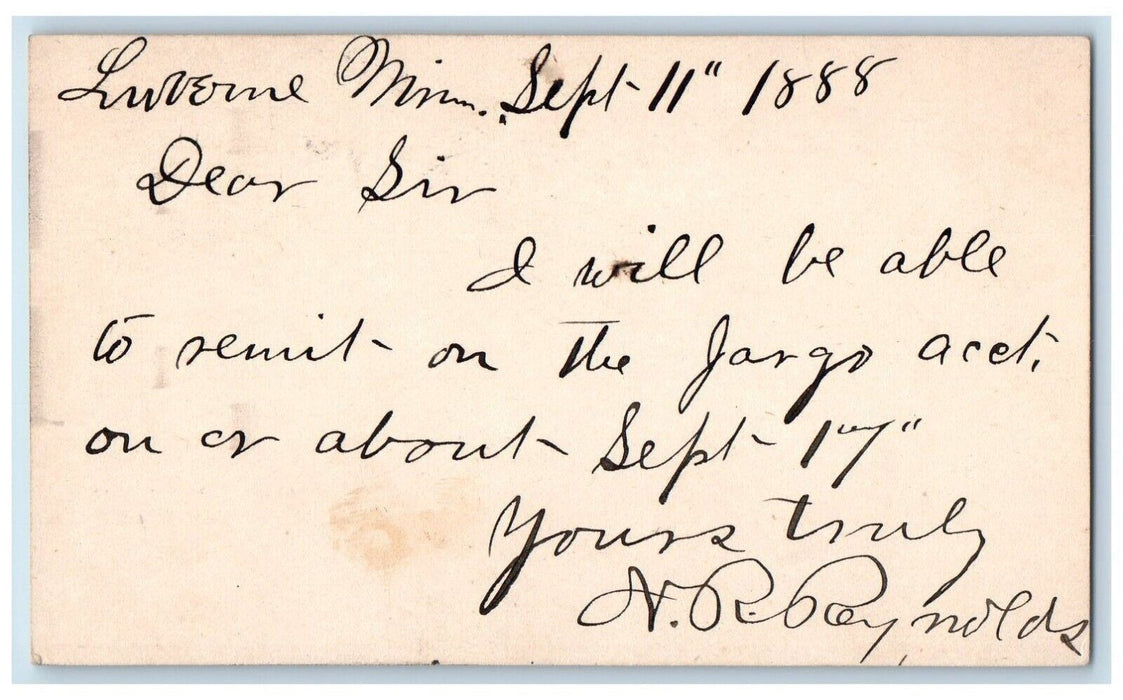 Luverne Minn. Sept 11" 1888
Dear Sir
I will be able
to remit on the Jargo acct.
on or about Sept 17"
Yours truly
N. R. Reynolds